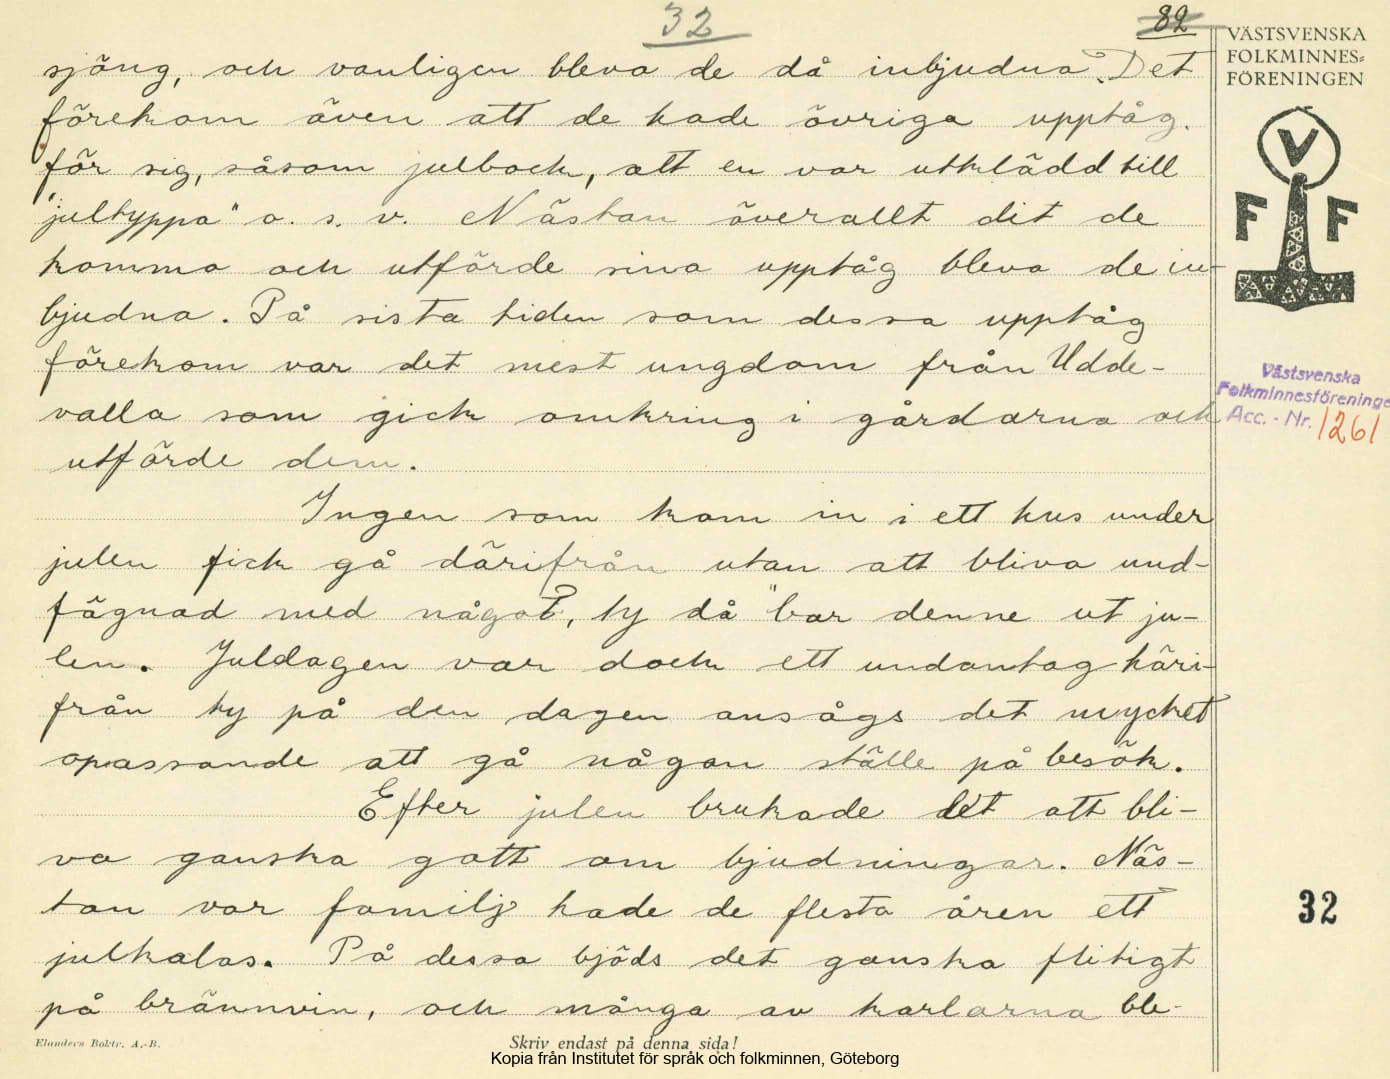 32
82
VÄSTSVENSKA
FOLKMINNES=
FÖRENINGEN
V
F F
Västsvenska
Folkminnesförening
Acc. - Nr. 1261
sjöng, och vanligen bleva de då inbjudna. Det
förekom även att de hade övriga upptåg.
för sig, såsom julbock, att en var utklädd till
"jultyppa" o. s. v. Nästan överallt dit de
komma och utförde sina upptåg bleva de in-
bjudna. På sista tiden som dessa upptåg
förekom var det mest ungdom från Udde-
valla som gick omkring i gårdarna och
utförde dem.
Ingen som kom in i ett hus under
julen fick gå därifrån utan att bliva und-
fägnad med något, ty då "bar denne ut ju-
len. Juldagen var dock ett undantag häri-
från ty på den dagen ansågs det mycket
opassande att gå någon ställe på besök.
Efter julen brukade det att bli-
va ganska gott om bjudningar. Näs-
tan var familj hade de flesta åren ett
julkalas. På dessa bjöds det ganska flitigt
på brännvin, och många av karlarna ble-
32
Elanders Boktr. A.-B.
Skriv endast på denna sida!
Kopia från Institutet för språk och folkminnen, Göteborg